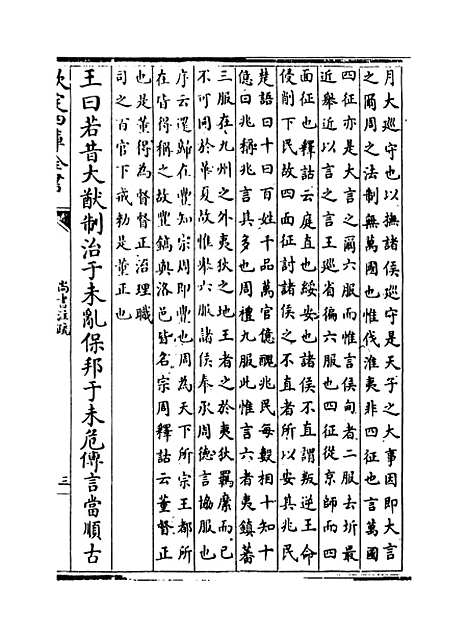 月大巡守也以撫諸侯巡守是天子之大事因即大言
之爾周之法制無萬國也惟伐淮夷非四征也言萬國
四征亦是大言之爾六服而惟言侯甸者二服去圻最
近舉近以言之言王巡省徧六服也四征從京師而四
面征也釋詁云庭直也綏安也諸侯不直謂叛逆王命
侵削下民故四面征討諸侯之不直者所以安其兆民
楚語曰十日百姓千品萬官億醜兆民每數相十知十
億曰兆稱兆言其多也周禮九服此惟言六者夷鎮蕃
三服在九州之外夷狄之地王者之於夷狄羈縻而已
不可同於華夏故惟舉六服諸侯奉承周德言協服也
序云還歸在豐知宗周即豐也周為天下所宗王都所
在皆得稱之故豐鎬與洛邑皆名宗周釋詁云董督正
也是董得為督督正治理職
司之百官下戒勅是董正也
王曰若昔大猷制治于未亂保邦于未危傳言當順古
欽定四庫全書
尚書注疏
三